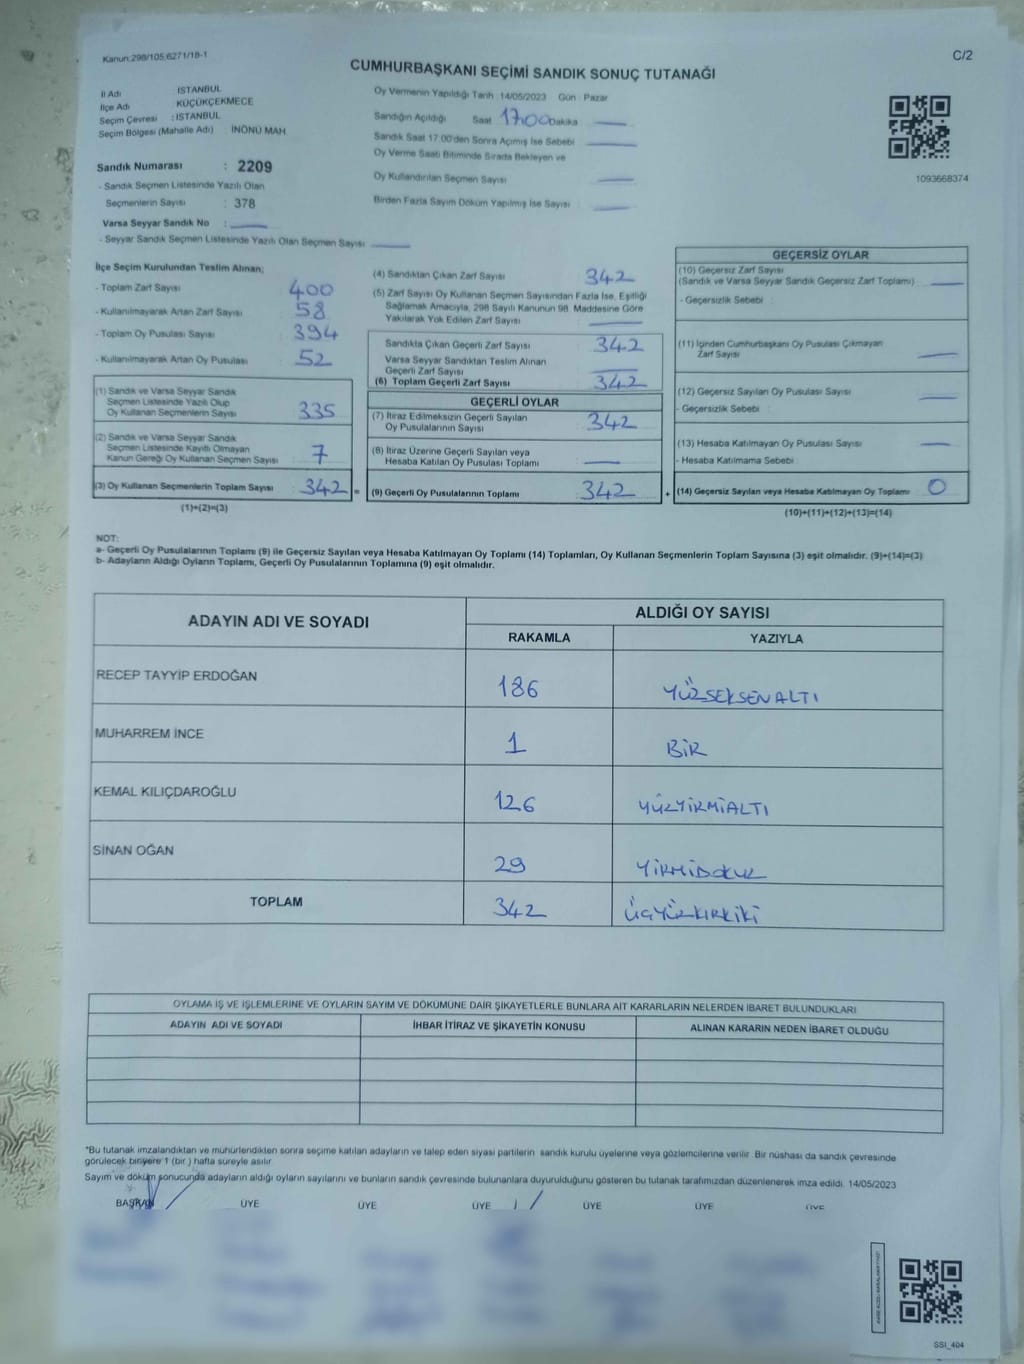 Kanun:298/105;6271/18-1
C/2
CUMHURBAŞKANI SEÇİMİ SANDIK SONUÇ TUTANAĞI
İl Adı İSTANBUL
İlçe Adı KÜÇÜKÇEKMECE
Seçim Çevresi : İSTANBUL
Seçim Bölgesi (Mahalle Adı) : İNÖNÜ MAH
Oy Vermenin Yapıldığı Tarih :14/05/2023 Gün : Pazar
Sandığın Açıldığı Saat 17:00 Dakika
Sandık Saat 17.00'den Sonra Açımış İse Sebebi
Oy Verme Saati Bitiminde Sırada Bekleyen ve
Oy Kullandırılan Seçmen Sayısı
Birden Fazla Sayım Döküm Yapılmış İse Sayısı :
1093668374
Sandık Numarası : 2209
- Sandık Seçmen Listesinde Yazılı Olan
Seçmenlerin Sayısı : 378
Varsa Seyyar Sandık No :
- Seyyar Sandık Seçmen Listesinde Yazılı Olan Seçmen Sayısı
İlçe Seçim Kurulundan Teslim Alınan;
- Toplam Zarf Sayısı 400
- Kullanılmayarak Artan Zarf Sayısı 58
- Toplam Oy Pusulası Sayısı 394
- Kullanılmayarak Artan Oy Pusulası 52
(1) Sandık ve Varsa Seyyar Sandık
Seçmen Listesinde Yazılı Olup
Oy Kullanan Seçmenlerin Sayısı 335
(2) Sandık ve Varsa Seyyar Sandık
Seçmen Listesinde Kayıtlı Olmayan
Kanun Gereği Oy Kullanan Seçmen Sayısı 7
(3) Oy Kullanan Seçmenlerin Toplam Sayısı 342 =
(1)+(2)=(3)
(4) Sandıktan Çıkan Zarf Sayısı 342
(5) Zarf Sayısı Oy Kullanan Seçmen Sayısından Fazla İse, Eşitliği
Sağlamak Amacıyla, 298 Sayılı Kanunun 98. Maddesine Göre
Yakılarak Yok Edilen Zarf Sayısı :
Sandıkta Çıkan Geçerli Zarf Sayısı 342
Varsa Seyyar Sandıktan Teslim Alınan
Geçerli Zarf Sayısı
(6) Toplam Geçerli Zarf Sayısı 342
GEÇERLİ OYLAR
(7) İtiraz Edilmeksizin Geçerli Sayılan
Oy Pusulalarının Sayısı 342
(8) İtiraz Üzerine Geçerli Sayılan veya
Hesaba Katılan Oy Pusulası Toplamı
(9) Geçerli Oy Pusulalarının Toplamı 342 +
GEÇERSİZ OYLAR
(10) Geçersiz Zarf Sayısı
(Sandık ve Varsa Seyyar Sandık Geçersiz Zarf Toplamı) :
- Geçersizlik Sebebi :
(11) İçinden Cumhurbaşkanı Oy Pusulası Çıkmayan
Zarf Sayısı
(12) Geçersiz Sayılan Oy Pusulası Sayısı
- Geçersizlik Sebebi :
(13) Hesaba Katılmayan Oy Pusulası Sayısı
- Hesaba Katılmama Sebebi
(14) Geçersiz Sayılan veya Hesaba Katılmayan Oy Toplamı 0
(10)+(11)+(12)+(13)=(14)
NOT:
a- Geçerli Oy Pusulalarının Toplamı (9) ile Geçersiz Sayılan veya Hesaba Katılmayan Oy Toplamı (14) Toplamları, Oy Kullanan Seçmenlerin Toplam Sayısına (3) eşit olmalıdır. (9)+(14)=(3)
b- Adayların Aldığı Oyların Toplamı, Geçerli Oy Pusulalarının Toplamına (9) eşit olmalıdır.
ADAYIN ADI VE SOYADI
ALDIĞI OY SAYISI
RAKAMLA YAZIYLA
RECEP TAYYİP ERDOĞAN 186 YÜZSEKSENALTI
MUHARREM İNCE 1 BİR
KEMAL KILIÇDAROĞLU 126 YÜZYİRMİALTI
SİNAN OĞAN 29 YİRMİDOKUZ
TOPLAM 342 ÜÇYÜZKIRKİKİ
OYLAMA İŞ VE İŞLEMLERİNE VE OYLARIN SAYIM VE DÖKÜMÜNE DAİR ŞİKAYETLERLE BUNLARA AİT KARARLARIN NELERDEN İBARET BULUNDUKLARI
ADAYIN ADI VE SOYADI İHBAR İTİRAZ VE ŞİKAYETİN KONUSU ALINAN KARARIN NEDEN İBARET OLDUĞU
*Bu tutanak imzalandıktan ve mühürlendikten sonra seçime katılan adayların ve talep eden siyasi partilerin sandık kurulu üyelerine veya gözlemcilerine verilir. Bir nüshası da sandık çevresinde
görülecek biryere 1 (bir ) hafta süreyle asılır.
Sayım ve döküm sonucunda adayların aldığı oyların sayılarını ve bunların sandık çevresinde bulunanlara duyurulduğunu gösteren bu tutanak tarafımızdan düzenlenerek imza edildi. 14/05/2023
BAŞKAN ÜYE ÜYE ÜYE ÜYE ÜYE ÜYE
SSI_404